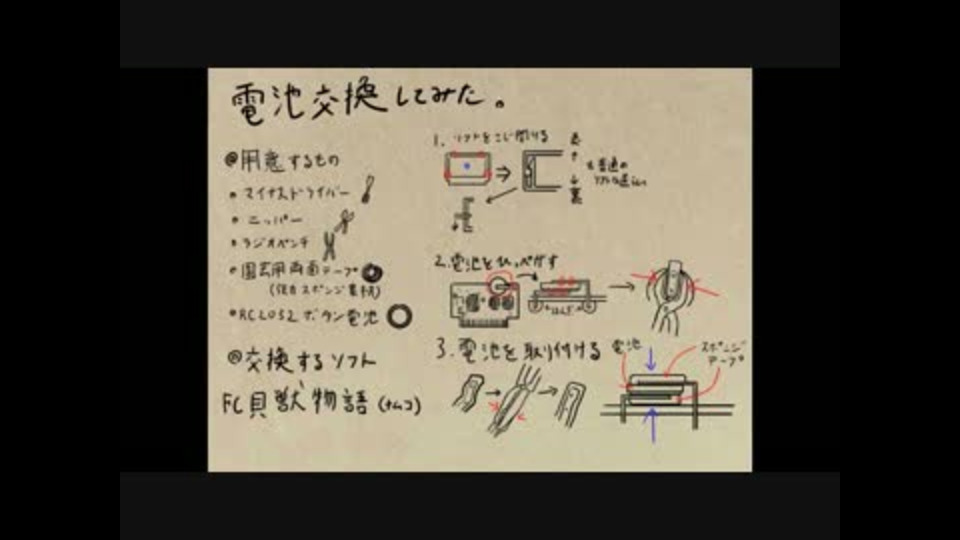 電池交換してみた。
@用意するもの
・マイナスドライバー
・ニッパー
・ラジオペンチ
・固定用両面テープ
・RC2032 ボタン電池
@交換するソフト
FC貝獣物語(ナムコ)
1. ソフトをこじ開ける
表
裏
2.電池をひっぺがす
はんだ
3.電池を取り付ける
電池
スポンジ
テープ